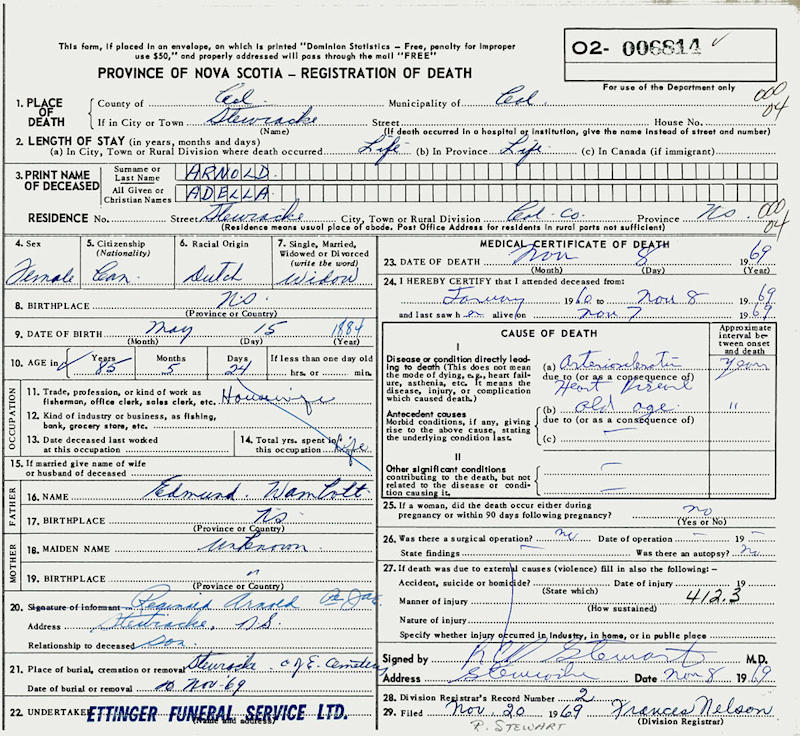 This form, if placed in an envelope, on which is printed "Dominion Statistics – Free, penalty for improper
use $50," and properly addressed will pass through the mail "FREE"
O2- 006814
PROVINCE OF NOVA SCOTIA – REGISTRATION OF DEATH
For use of the Department only
1. PLACE OF DEATH County of Col. Municipality of Col.
If in City or Town Stewiacke Street House No.
(Name) (If death occurred in a hospital or institution, give the name instead of street and number)
2. LENGTH OF STAY (in years, months and days)
(a) In City, Town or Rural Division where death occurred Life (b) In Province Life (c) In Canada (if immigrant)
3. PRINT NAME OF DECEASED
Surname or Last Name ARNOLD
All Given or Christian Names ADELLA
RESIDENCE No. Street Stewiacke City, Town or Rural Division Col. Co. Province NS.
(Residence means usual place of abode. Post Office Address for residents in rural parts not sufficient)
4. Sex Female
5. Citizenship (Nationality) Can
6. Racial Origin Dutch
7. Single, Married, Widowed or Divorced (write the word) Widow
8. BIRTHPLACE NS
(Province or Country)
9. DATE OF BIRTH May 15 1884
(Month) (Day) (Year)
10. AGE in Years 85 Months 5 Days 24 If less than one day old hrs. or min.
OCCUPATION
11. Trade, profession, or kind of work as fisherman, office clerk, sales clerk, etc. Housewife
12. Kind of industry or business, as fishing, bank, grocery store, etc.
13. Date deceased last worked at this occupation
14. Total yrs. spent in this occupation Life
15. If married give name of wife or husband of deceased
FATHER
16. NAME Edmund Wambolt
17. BIRTHPLACE NS
(Province or Country)
MOTHER
18. MAIDEN NAME unknown
19. BIRTHPLACE "
(Province or Country)
20. Signature of informant Reginald Arnold
Address Stewiacke, N.S.
Relationship to deceased Son
21. Place of burial, cremation or removal Stewiacke C of E. Cemetery
Date of burial or removal 10 Nov-69
22. UNDERTAKER ETTINGER FUNERAL SERVICE LTD.
(Name and address)
MEDICAL CERTIFICATE OF DEATH
23. DATE OF DEATH Nov 8 1969
(Month) (Day) (Year)
24. I HEREBY CERTIFY that I attended deceased from:
January 1960 to Nov 8 1969
and last saw her alive on Nov 7 1969
CAUSE OF DEATH
Approximate interval between onset and death
I
Disease or condition directly leading to death (This does not mean the mode of dying, e.g., heart failure, asthenia, etc. It means the disease, injury, or complication which caused death.)
(a) Arteriosclerotic
due to (or as a consequence of)
Heart Disease
years
Antecedent causes
Morbid conditions, if any, giving rise to the above cause, stating the underlying condition last.
(b) old age "
due to (or as a consequence of)
(c) —
II
Other significant conditions contributing to the death, but not related to the disease or condition causing it.
25. If a woman, did the death occur either during pregnancy or within 90 days following pregnancy? no
(Yes or No)
26. Was there a surgical operation? no Date of operation – 19 –
State findings – Was there an autopsy? No
27. If death was due to external causes (violence) fill in also the following:–
Accident, suicide or homicide? Date of injury 19
(State which)
Manner of injury 412.3
(How sustained)
Nature of injury
Specify whether injury occurred in industry, in home, or in public place
Signed by Stewart M.D.
Address Stewiacke Date Nov 8 1969
28. Division Registrar's Record Number 2
29. Filed Nov. 20 1969 Frances Nelson
(Division Registrar)
R. STEWART